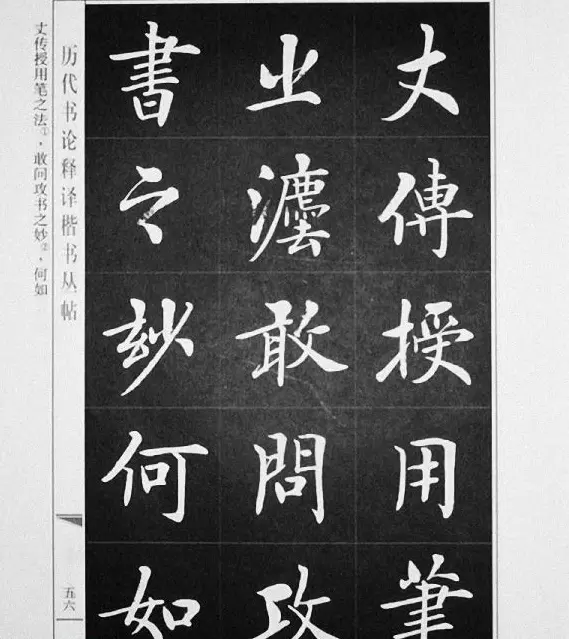 丈傳授用筆
之灋敢問攻
書之妙何如
历代书论释译楷书丛帖
五六
丈传授用笔之法①，敢问攻书之妙②，何如